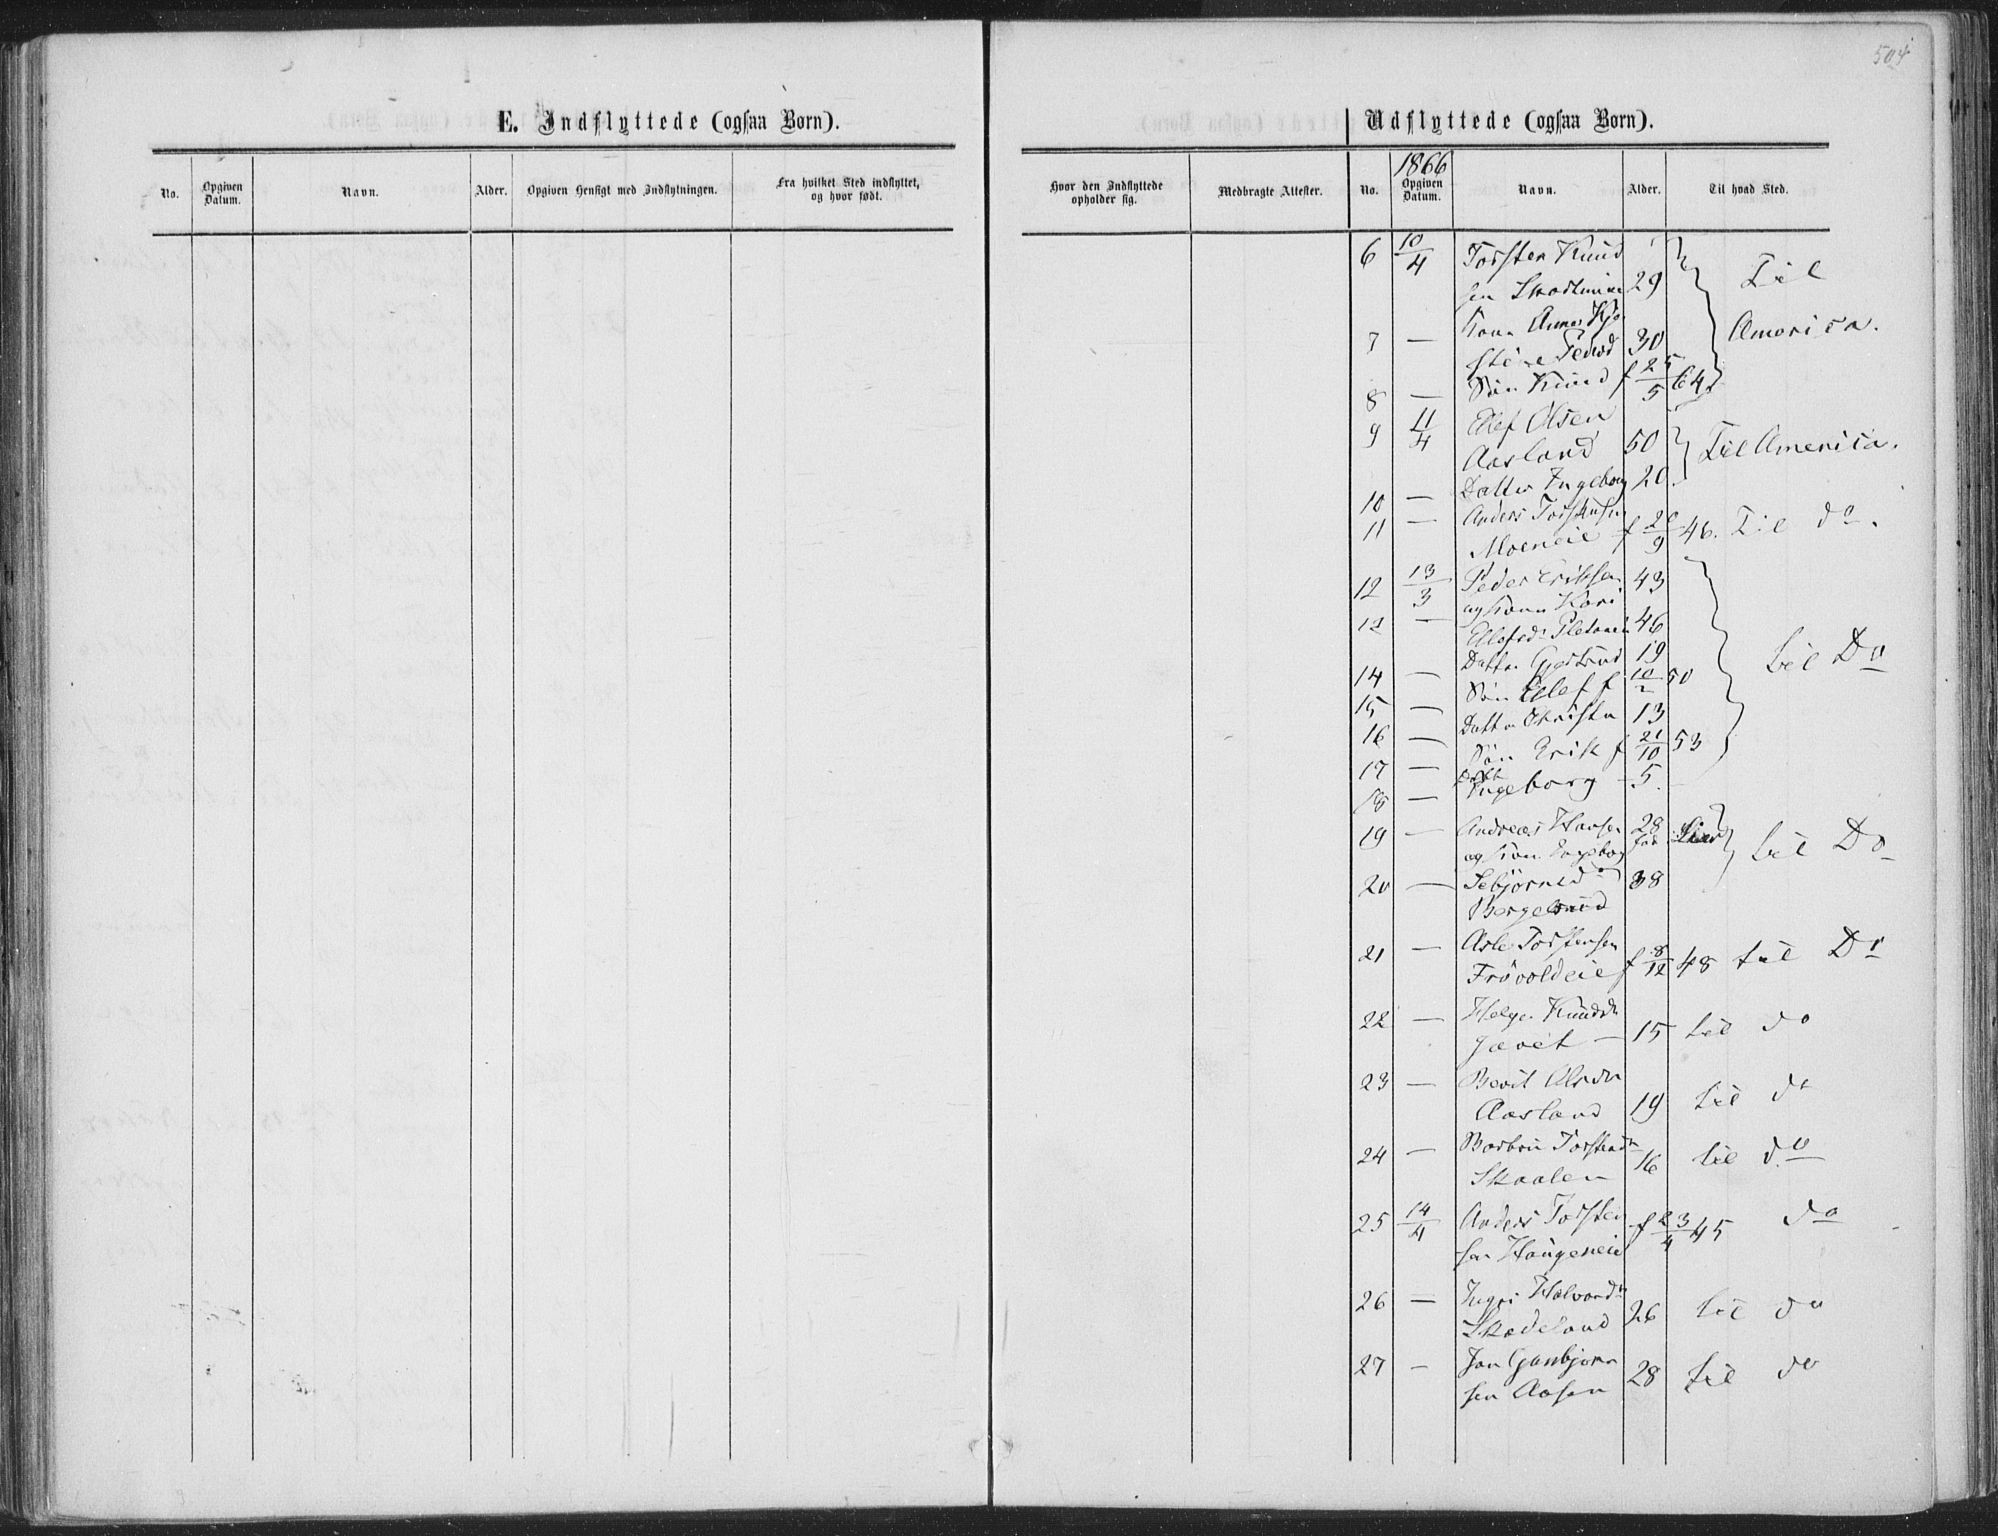 504
E. Indflyttede (ogsaa Børn).
No.
Opgiven Datum.
Navn.
Alder.
Opgiven Hensigt med Indflytningen.
Fra hvilket Sted indflyttet, og hvor født.
Udflyttede (ogsaa Børn).
Hvor den Indflyttede opholder sig.
Medbragte Attester.
No.
1866
Opgiven Datum.
Navn.
Alder.
Til hvad Sted.
6 10/4 Torsten Knud
sen 29 Til
7 — Kona Anne Kje
30 America.
8 — Søn Knud f 25/5 64
9 11/4 Ellef Olsen
Aasland 50 Til America.
10 — Datter Ingeborg 20
11 — Anders Torstensen
Moeneie f 20/9 46. Til do.
12 13/3 Peder Eriksen 43
og Kona Kari
13 — Ellefsdr 46
14 — Datter Gjertrud 19 til Do
15 — Søn Ellef f 10/2 50
16 — Datter Christn 13
17 — Søn Erik f 21/10 53
18 — Datt Ingeborg — 5.
19 — Andreas Hansen 28
og Kone Ingeborg til Do
20 — 38
21 — Asle Torstensen
Trøvoldeie f 8/12 48 til Do
22 — Helge Knudsdr
— 15 til do
23 — Berit Olsdr
Aasland 19 til do
24 — Barbro Torstensdr
Skaalen 16 til do
25 14/4 Anders Torsten
sen Haugeneie f 23/4 45 do
26 — Ingri Halvordsdr
Skadeland 26 til do
27 — Jon Gunbjørn
sen Aasen 28 til do